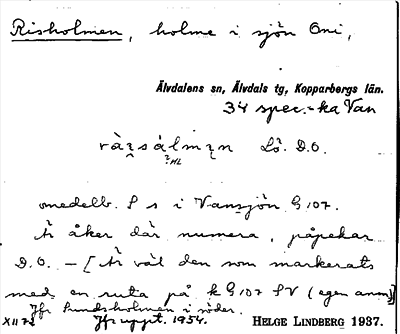 Risholmen, holme i sjön Oni,
Älvdalens sn, Älvdals tg, Kopparbergs län.
34 spec.-ka Van
Lô. D.O.
omedelb. S s i Vansjön G 107.
Är åker där numera, påpekar
D.O. – [Är väl den som markerats
med en ruta på k G 107 SV (egen anm)]
Jfr Sundsholmen i söder.
XII 73 Jfr uppt. 1954. HELGE LINDBERG 1937.